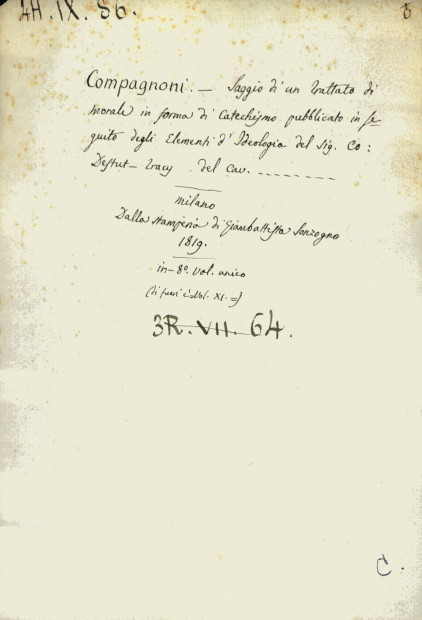 4H.IX.86.
Compagnoni. — Saggio di un trattato di
morale in forma di Catechismo pubblicato in se-
guito degli Elementi d'Ideologia del Sig. Co:
Destut-Tracy del Cav. --------
Milano
Dalla stamperia di Giambattista Sonzogno
1819.
in-8º. vol. unico
3R.VII.64.
C.